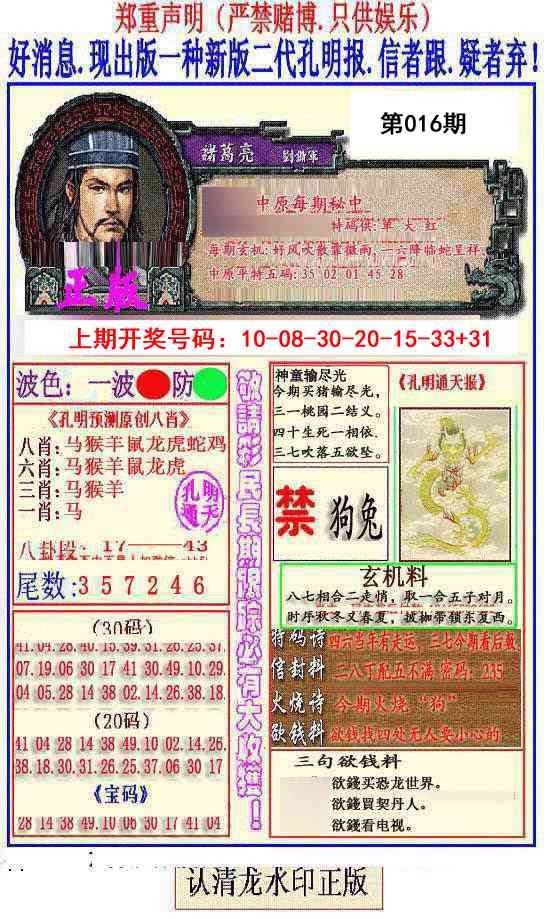 郑重声明（严禁赌博.只供娱乐）
好消息.现出版一种新版二代孔明报.信者跟.疑者弃！
第016期
諸葛亮 劉謝軍
中原每期秘中
特码供:單 大 红
每期玄机:好风吹散靠微雨,二六降临蛇呈祥.
中原平特五码:35 02 01 45 28
正版
上期开奖号码：10-08-30-20-15-33+31
波色：一波 防
《孔明预测原创八肖》
八肖:马猴羊鼠龙虎蛇鸡
六肖:马猴羊鼠龙虎
三肖:马猴羊
一肖:马
孔明
通天
八卦段：17——43
尾数:357246
(30码)
41.04.28.40.15.39.31.26.25.37
07.19.06.30 17 41 30.49.10.29.
04 05.28 14 38 02.14.26.38.18
(20码)
41 04 28 14 38 49.10 02.14.26.
38.18.30.31.26.25.37.06 30 17
《宝码》
28 14 38 49.10 06 30 17 41 04
敬請彩民長期跟踪必有大收獲！
神童输尽光
今期买猪输尽光，
三一桃园二结义。
四十生死一相依.
三七吹落五欲坠。
《孔明通天报》
禁 狗兔
玄机料
八七相合二走悄，取一合五子对月。
时序秋冬又春夏，披枷带锁东复西。
特码诗 四六当年有走运，三七今期看后数
信封料 二八丁配五不满 密码：235
火烧诗 今期火烧“狗”
欲钱料 欲钱找四处无人要小心的
三句欲钱料
欲錢买恐龙世界。
欲錢買契丹人。
欲錢看电视。
认清龙水印正版